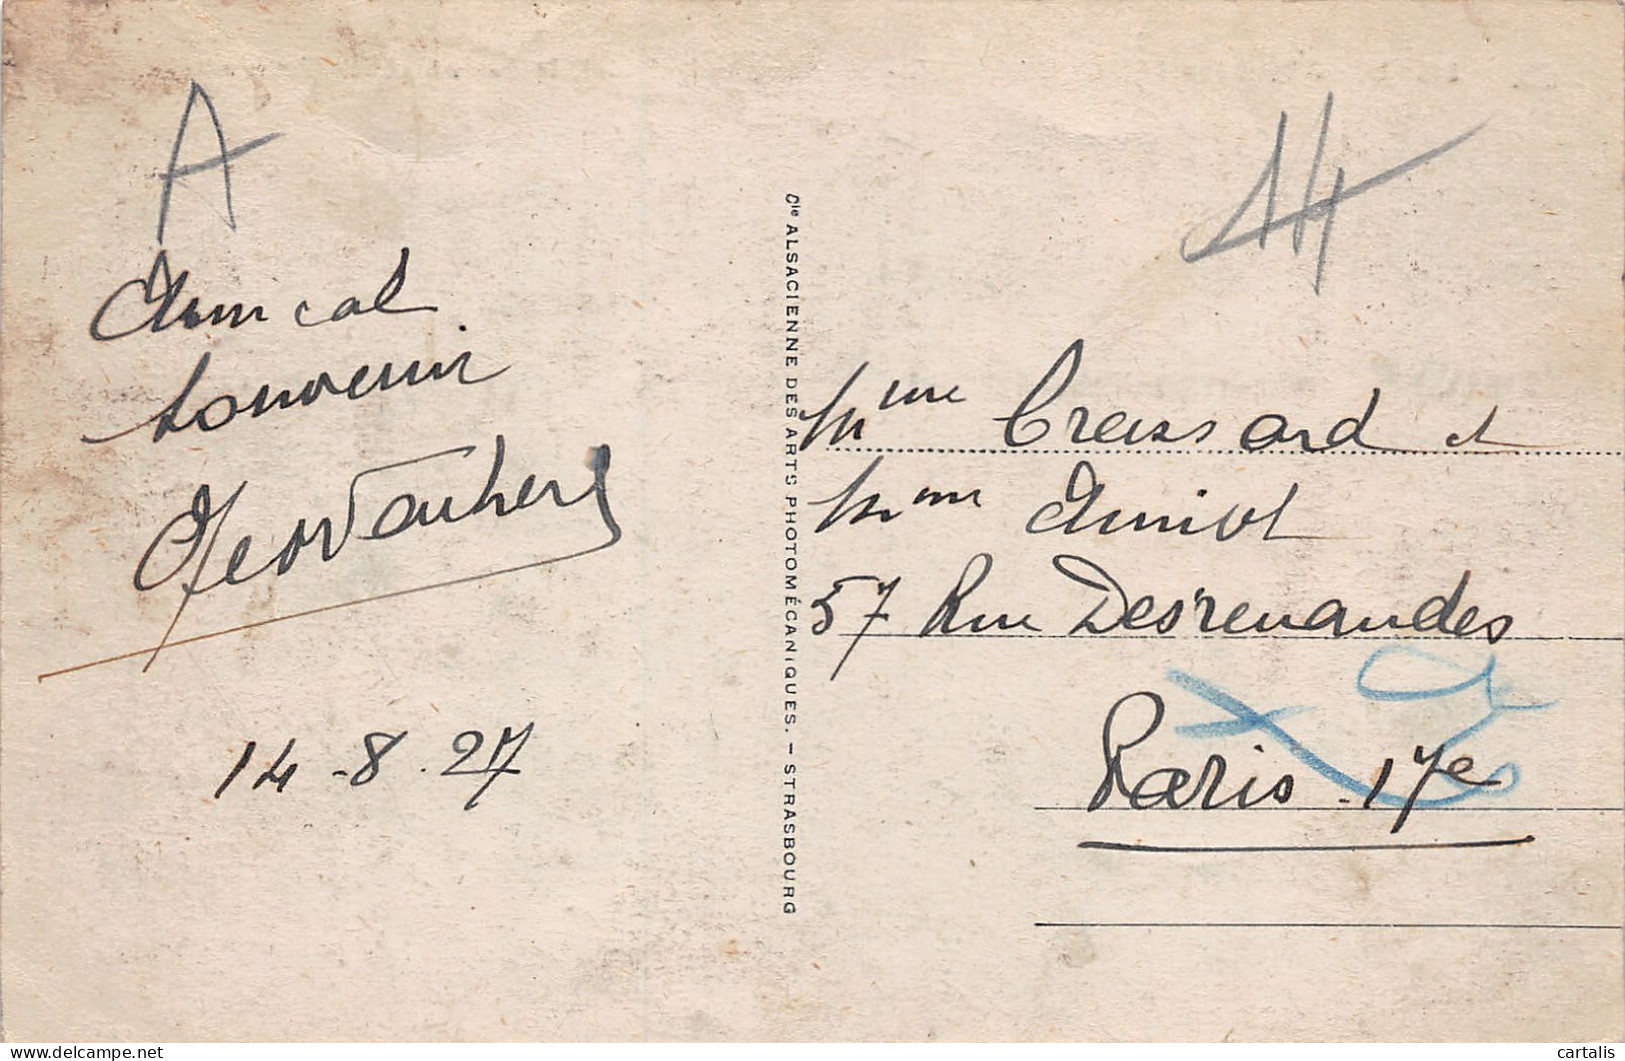 A
Amical
souvenir
14-8.27
Cie ALSACIENNE DES ARTS PHOTOMÉCANIQUES. — STRASBOURG
Mme Creissard et
Mme Amiot
57 Rue Desrenaudes
Paris. 17e
cartalis